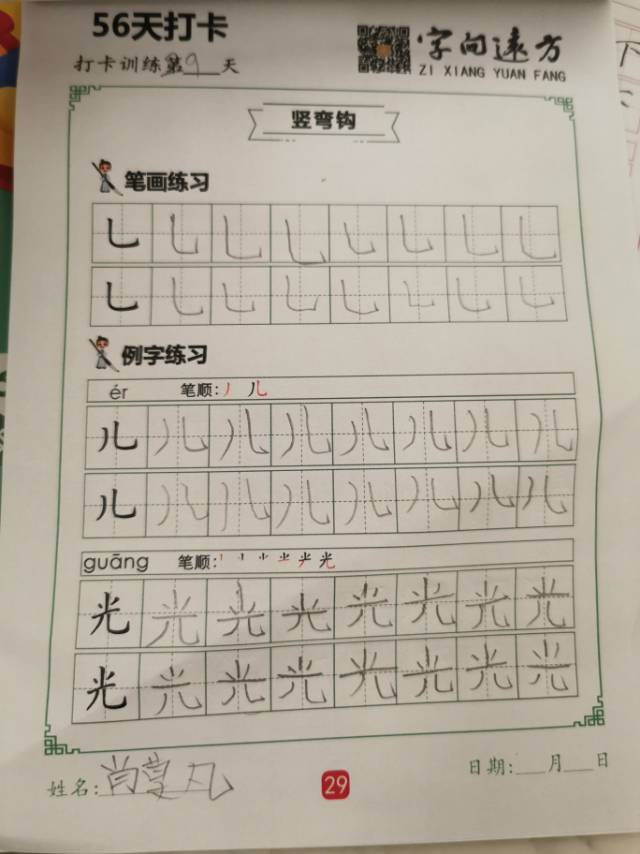 56天打卡
字向远方
打卡训练第29天
ZI XIANG YUAN FANG
竖弯钩
笔画练习
乚 乚 乚 乚 乚 乚 乚 乚
乚 乚 乚 乚 乚 乚 乚 乚
例字练习
ér 笔顺: 丿 儿
儿 儿 儿 儿 儿 儿 儿 儿
儿 儿 儿 儿 儿 儿 儿 儿
guāng 笔顺:
光 光 光 光 光 光 光 光
光 光 光 光 光 光 光 光
姓名:
29
日期: 月 日